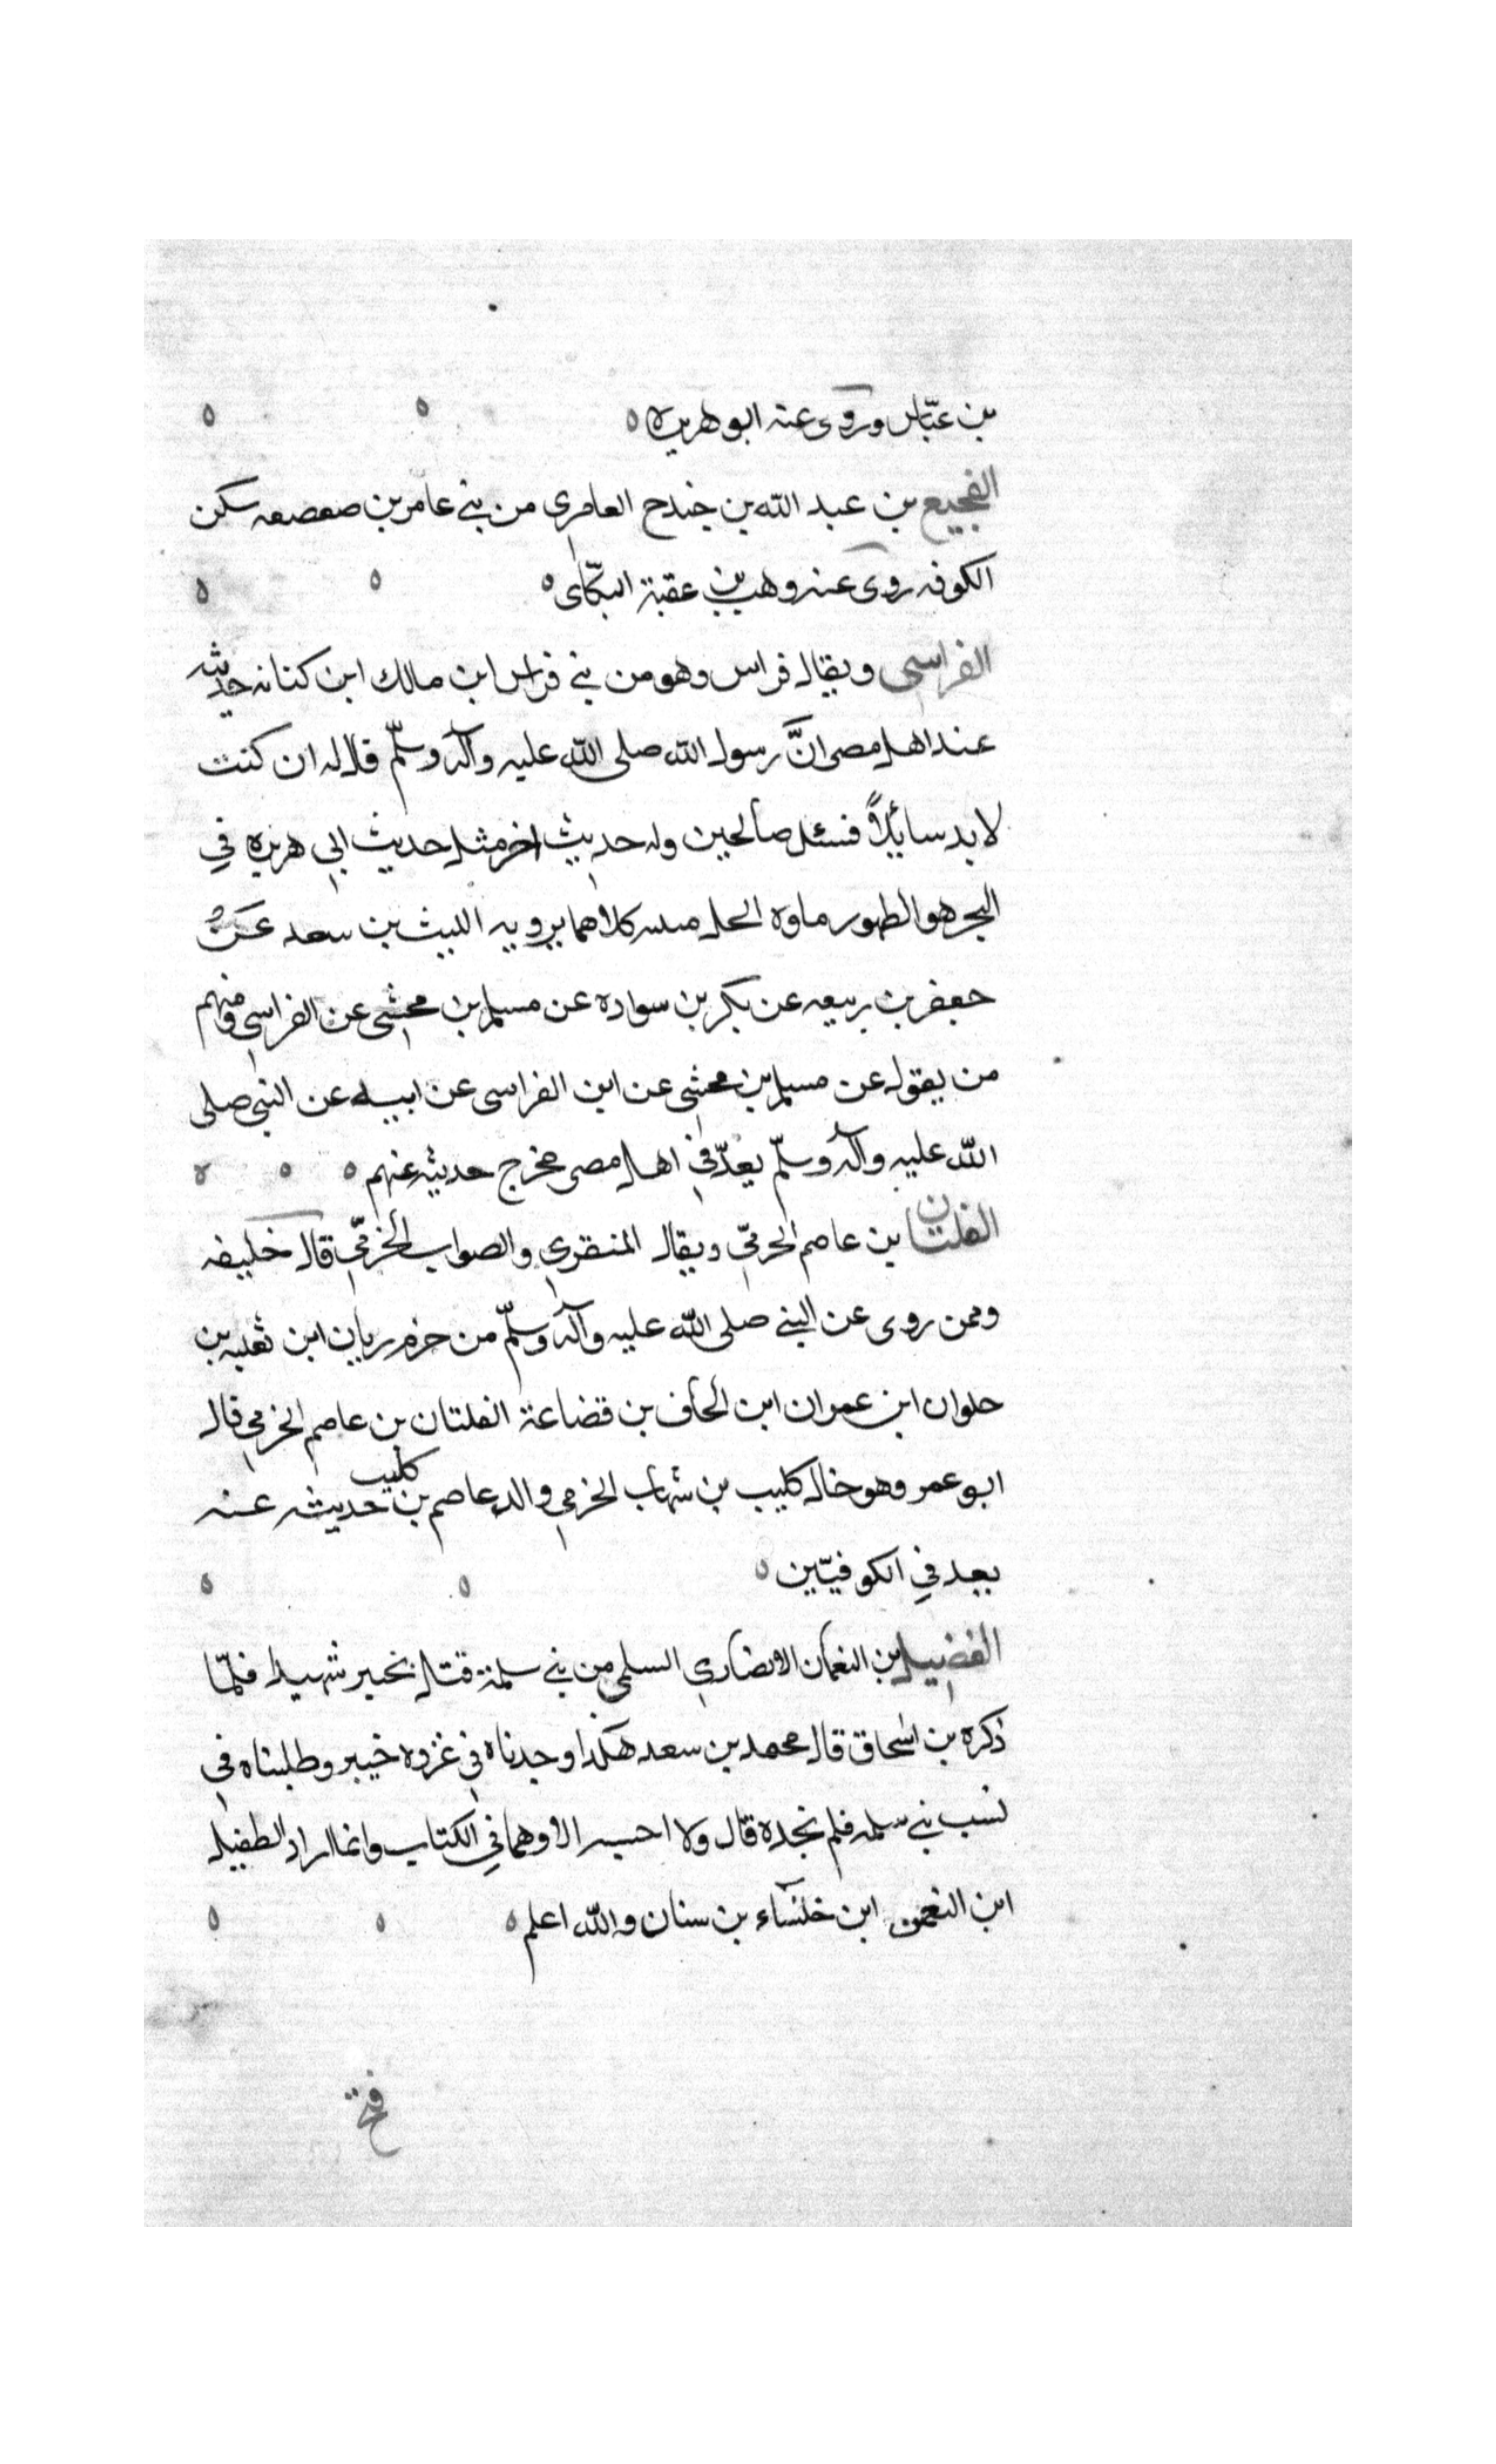 بن عبّاس وروى عنه ابو هريره
الفجيع بن عبد الله بن جندح العامري من بني عامر بن صعصعه سكن
الكوفه روى عنه وهب بن عقبة البكّاى
الفراسي ويقال فراس وهو من بني فراس ابن مالك ابن كنانه حديثه
عند اهل مصر انَّ رسول الله صلى الله عليه وآله وسلّم قال له ان كنت
لا بد سائلاً فسئل صالحين وله حديث اخر مثل حديث ابي هريره في
البحر هو الطهور ماوه الحل ميته كلاهما يرويه الليث بن سعد عن
جعفر بن ربيعه عن بكر بن سواده عن مسلم بن مخشى عن الفراسي ومنهم
من يقول عن مسلم بن مخشى عن ابن الفراسى عن ابيه عن النبي صلى
الله عليه وآله وسلّم يعدّ في اهل مصر مخرج حديثه عنهم
الفلتان بن عاصم الجرميّ ويقال المنقري والصواب الجرميّ قال خليفه
وممن روى عن النبي صلى الله عليه وآله وسلّم من جرم ريان ابن ثعلبه بن
حلوان ابن عمران ابن الحاف بن قضاعة الفلتان بن عاصم الجرمي قال
ابو عمر وهو خال كليب بن شهاب الجرمي والد عاصم بن كليب حديثه عنه
يعد في الكوفيّين
الفضيل بن النعمان الانصاري السلمي من بني سلمة قتل بخيبر شهيدا فلمّا
ذكره بن اسحاق قال محمد بن سعد هكذا وجدناه في غزوه خيبر وطلبناه في
نسب بني سلمه فلم نجده قال ولا احسبه الا وهما في الكتاب وانما اراد الطفيل
ابن النعمن ابن خنساء بن سنان والله اعلم